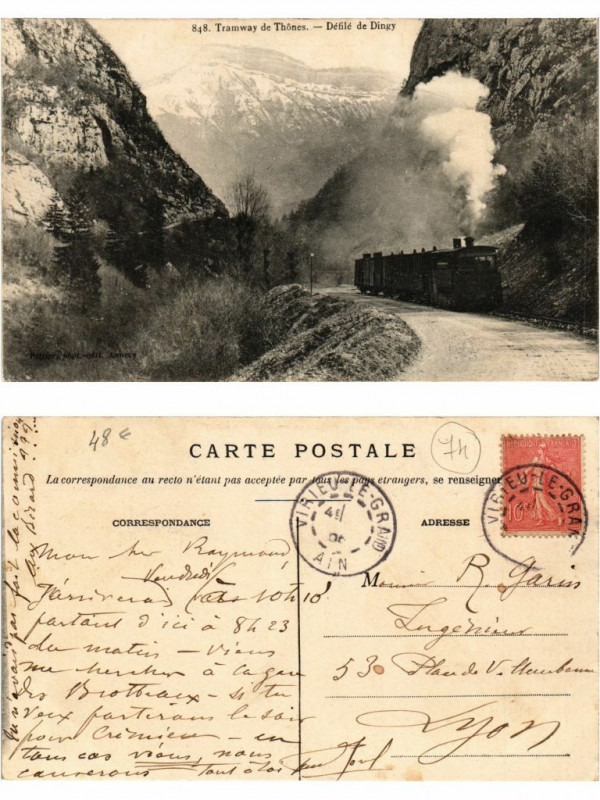 848. Tramway de Thônes. — Défilé de Dingy
Pittier, phot.-édit. Annecy
48 €
74
CARTE POSTALE
La correspondance au recto n'étant pas acceptée par tous les pays etrangers, se renseigner
CORRESPONDANCE
ADRESSE
VIRIEU-LE-GRAND
AIN
VIRIEU-LE-GRAND
Mon cher Raymond,
Vendredi
J'arriverai 10h10
partant d'ici à 8h23
du matin – viens
me chercher à la gare
des Brotteaux – si tu
veux partirons le soir
pour Crémieu – en
tous cas viens, nous
causerons tout à toi
tu n'avais pas fait la commission
aux Girard ???
Monsieur R. Garin
Ingénieur
53 Place de V.
Lyon